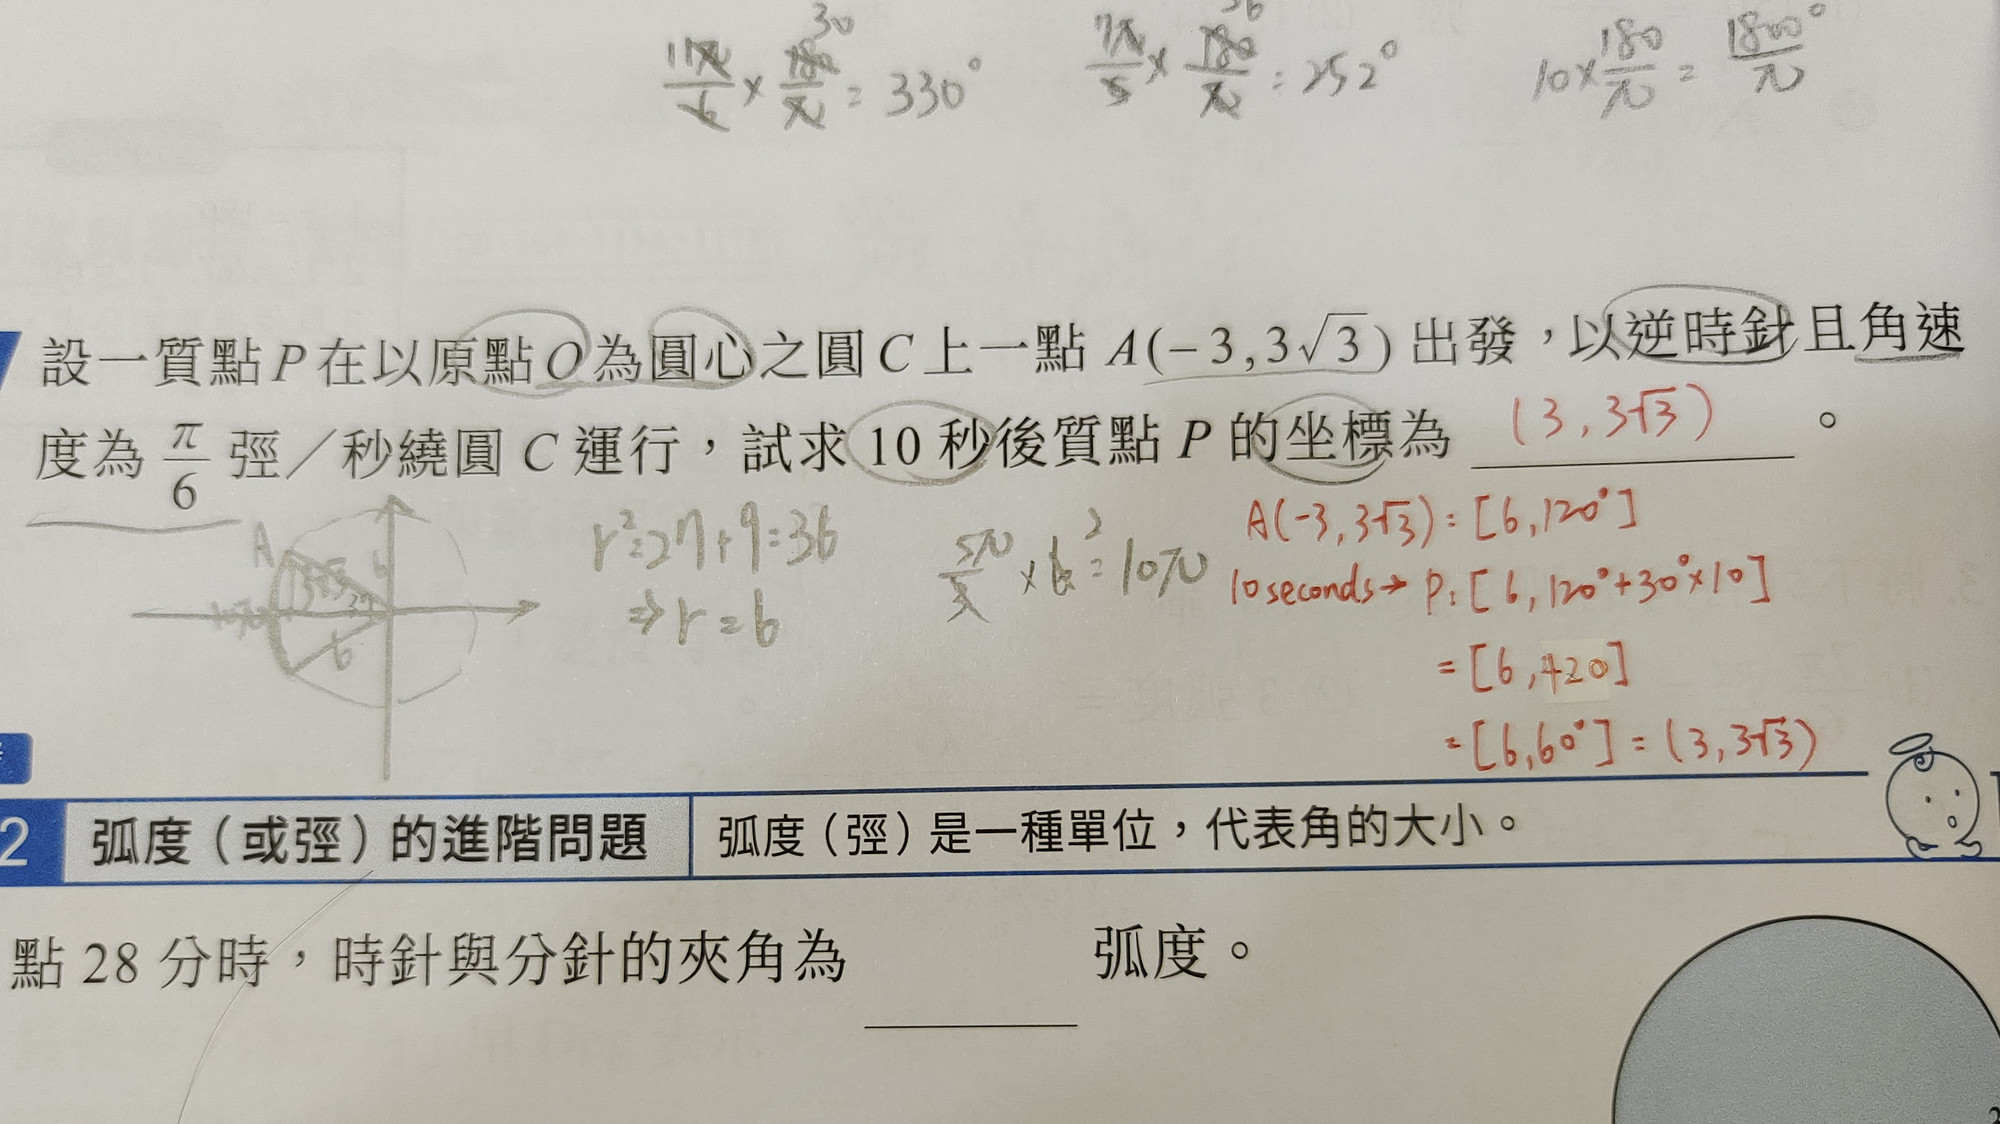 11π/6 × 180/π = 330° 30
7π/5 × 180/π = 252° 36
10 × 180/π = 1800°/π
設一質點P在以原點O為圓心之圓C上一點 A(−3,3√3)出發，以逆時針且角速
度為 π/6 弳／秒繞圓C運行，試求10秒後質點P的坐標為 (3,3√3) 。
A
6
r²=27+9=36
⇒r=6
5π/3 × 6 = 10π 2
A(-3,3√3):[6,120°]
10 seconds→ P:[6,120°+30°×10]
=[6,420]
=[6,60°]=(3,3√3)
2 弧度（或弳）的進階問題 弧度（弳）是一種單位，代表角的大小。
點 28 分時，時針與分針的夾角為 弧度。